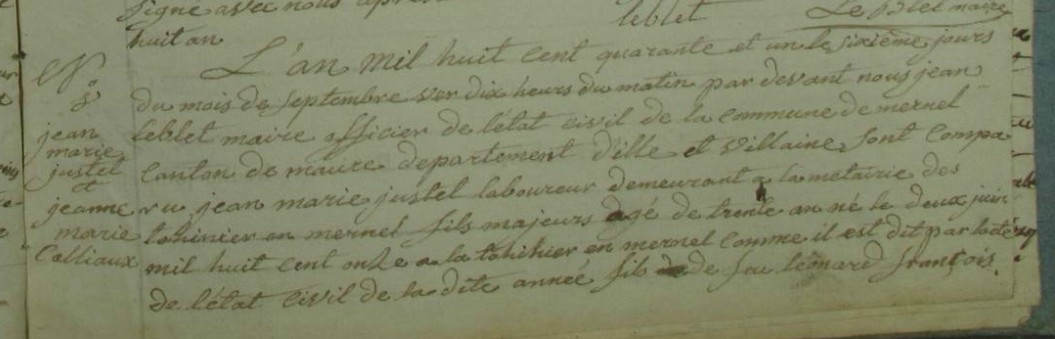 signe avec nous après
leblet Le Blet maire
huit an
L'an mil huit cent quarante et un le sixième jours
du mois de septembre ver dix heurs du matin par devant nous jean
leblet maire officier de létat civil de la commune de mernel
canton de maure departement dille et villaine sont compa
ru jean marie justel laboureur demeurant a la metairie des
tohinier en mernel fils majeurs agé de trente an né le deux juin
mil huit cent onze a la tohihier en mernel comme il est dit par lacte
de létat civil de la dite année fils de feu léonard françois
N°
8
jean
marie
justel
et
jeanne
marie
Colliaux